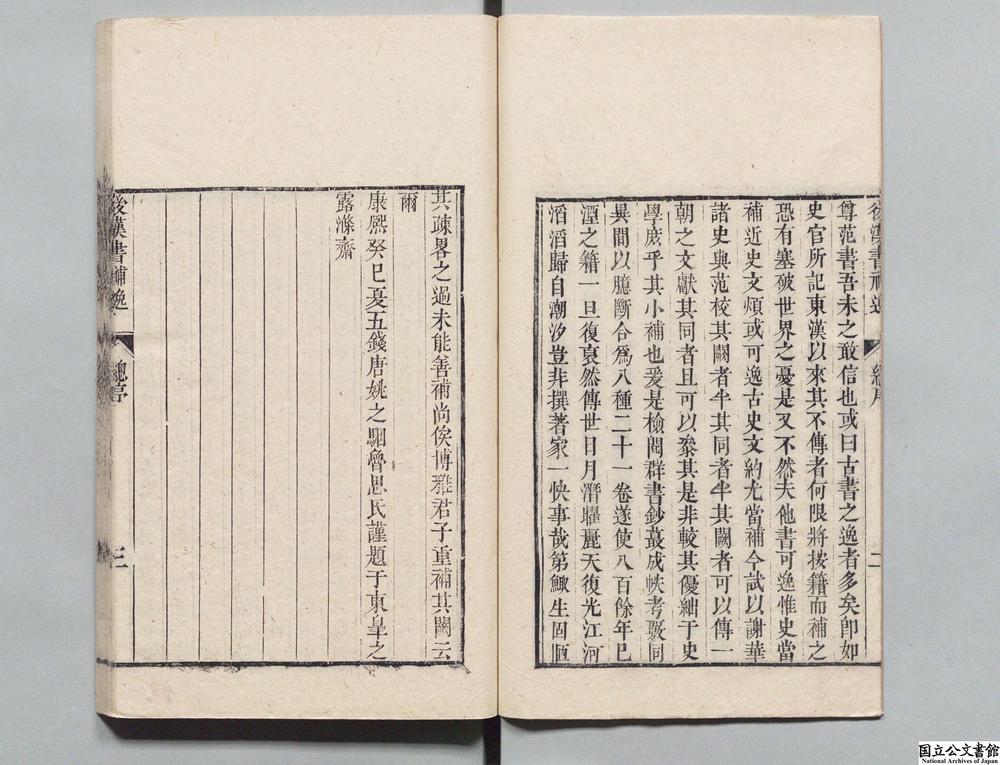 尊范書吾未之敢信也或曰古書之逸者多矣卽如
史官所記東漢以來其不傳者何限將按籍而補之
恐有塞破世界之憂是又不然夫他書可逸惟史當
補近史文煩或可逸古史文約尤當補今試以謝華
諸史與范校其闕者半其同者半其闕者可以傳一
朝之文獻其同者且可以叅其是非較其優絀于史
學庶乎其小補也爰是檢閱群書鈔蕞成帙考覈同
異間以臆斷合爲八種二十一卷遂使八百餘年已
湮之籍一旦復裒然傳世日月潛曜麗天復光江河
滔滔歸自潮汐豈非撰著家一快事哉第鯫生固陋
後漢書補逸
總序
二
其疎畧之過未能善補尚俟博雅君子重補其闕云
爾
康熙癸巳夏五錢唐姚之駰魯思氏謹題于東臯之
露滌齋
後漢書補逸
總序
三
国立公文書館
National Archives of Japan